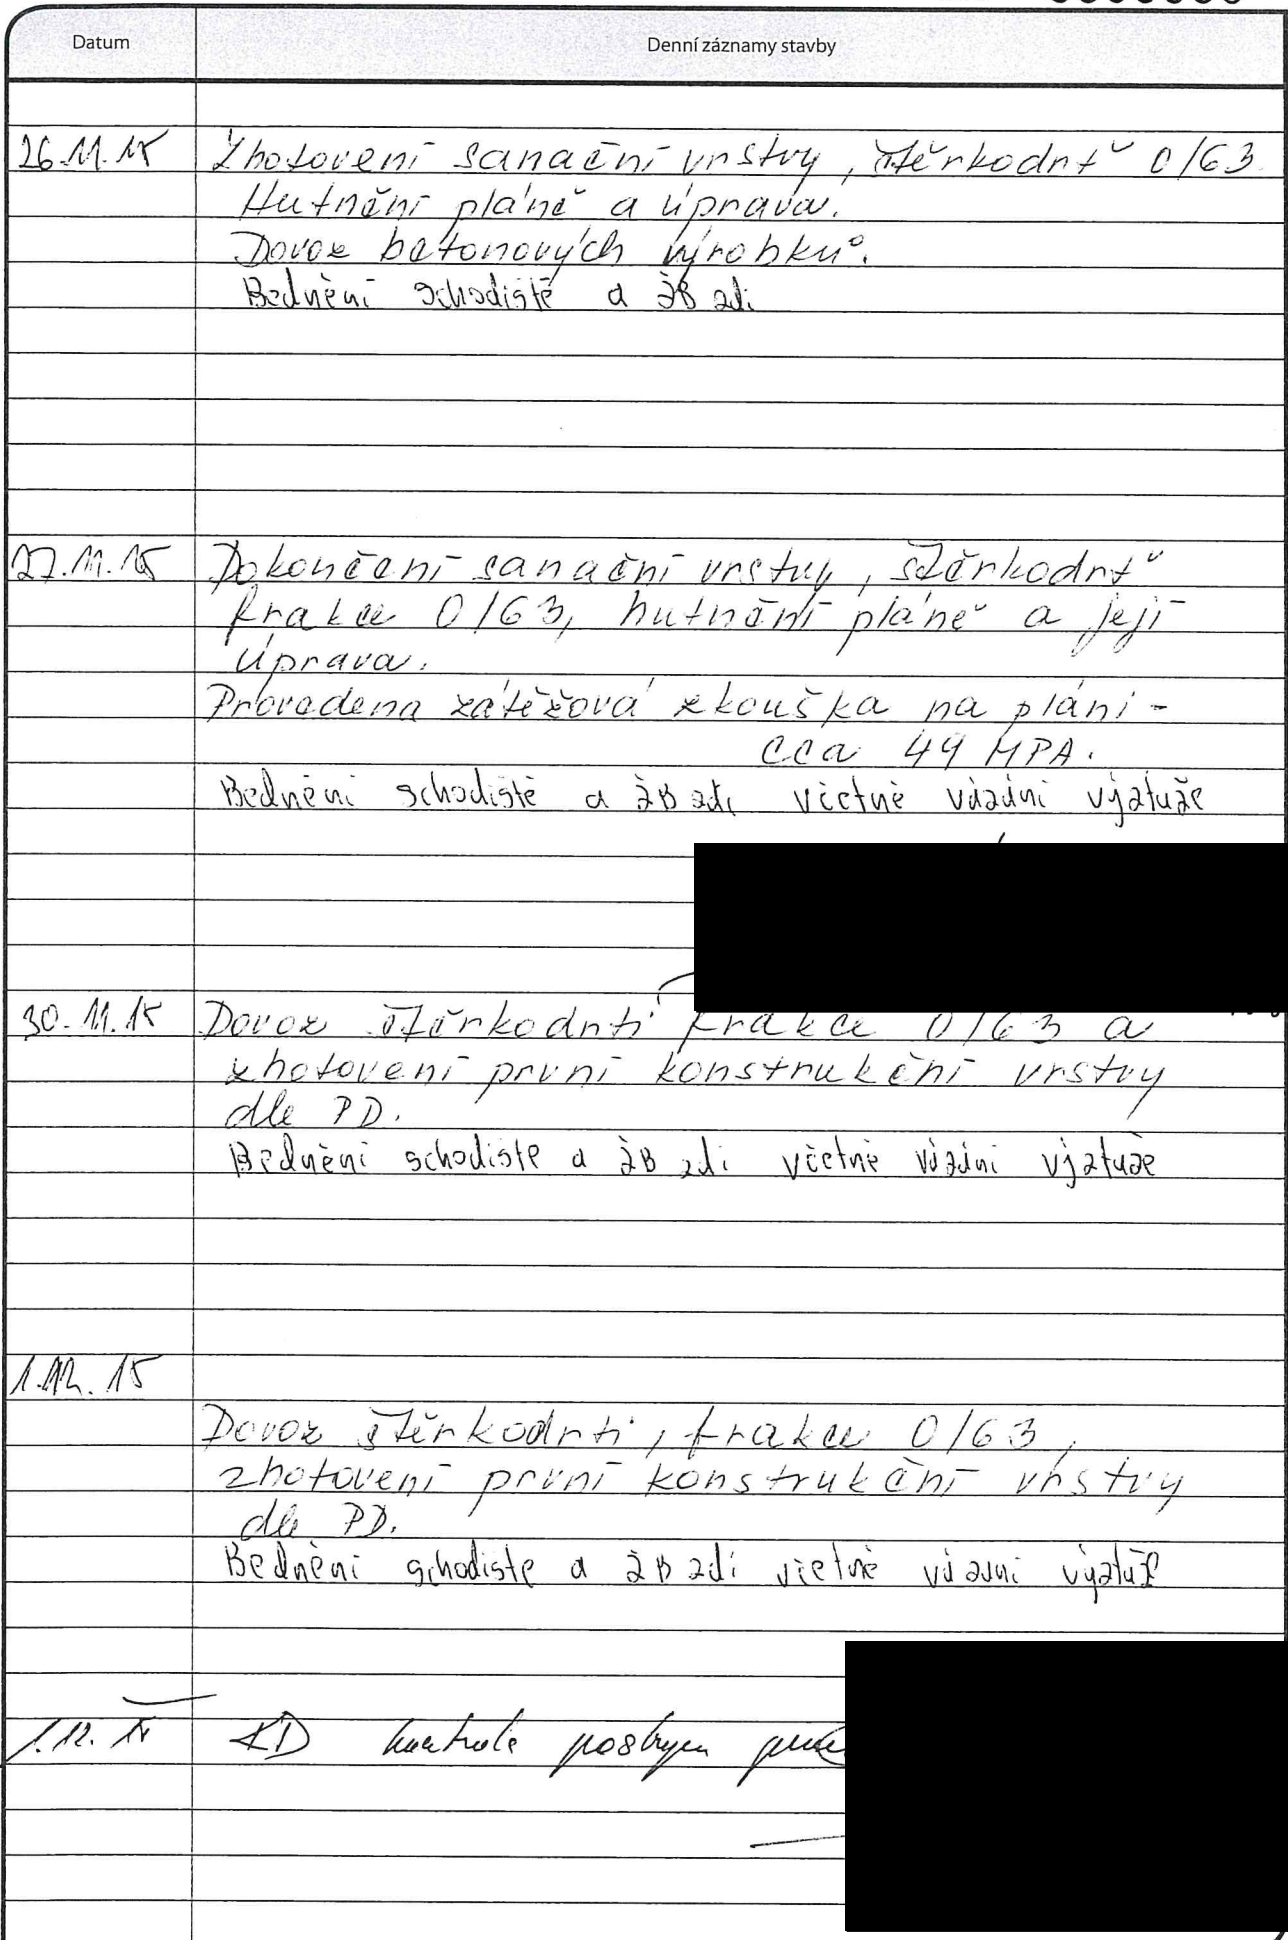 Datum
Denní záznamy stavby
26.11.15 Zhotovení sanační vrstvy, štěrkodrť 0/63.
Hutnění pláně a úprava.
Dovoz betonových výrobků.
Bednění schodiště a žB zdi
27.11.15 Dokončení sanační vrstvy, štěrkodrť
frakce 0/63, hutnění pláně a její
úprava.
Provedena zátěžová zkouška na pláni -
cca 49 MPA.
Bednění schodiště a žB zdi včetně vázání výztuže
30.11.15 Dovoz štěrkodrti frakce 0/63 a
zhotovení první konstrukční vrstvy
dle PD.
Bednění schodiště a žB zdi včetně vázání výztuže
1.12.15
Dovoz štěrkodrti, frakce 0/63,
zhotovení první konstrukční vrstvy
dle PD.
Bednění schodiště a žB zdi včetně vázání výztuž
1.12.15 KD kontrola postupu